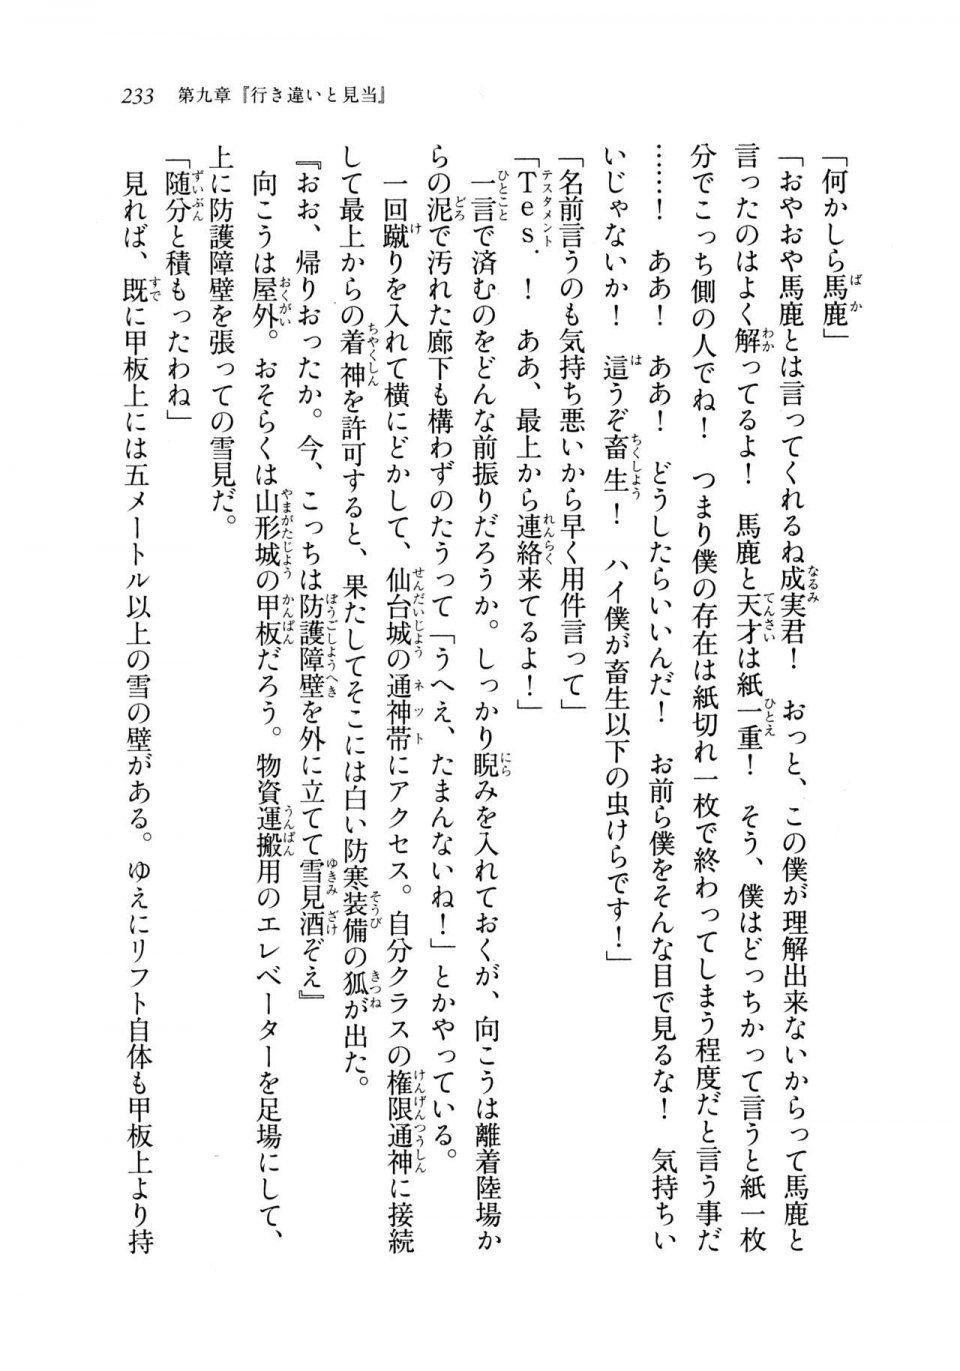 233 第九章『行き違いと見当』
「何かしら馬鹿」
「おやおや馬鹿とは言ってくれるね成実君！　おっと、この僕が理解出来ないからって馬鹿と
言ったのはよく解ってるよ！　馬鹿と天才は紙一重！　そう、僕はどっちかって言うと紙一枚
分でこっち側の人でね！　つまり僕の存在は紙切れ一枚で終わってしまう程度だと言う事だ
……！　ああ！　ああ！　どうしたらいいんだ！　お前ら僕をそんな目で見るな！　気持ちい
いじゃないか！　這うぞ畜生！　ハイ僕が畜生以下の虫けらです！」
「名前言うのも気持ち悪いから早く用件言って」
「Ｔｅｓ．！　ああ、最上から連絡来てるよ！」
　一言で済むのをどんな前振りだろうか。しっかり睨みを入れておくが、向こうは離着陸場か
らの泥で汚れた廊下も構わずのたうって「うへえ、たまんないね！」とかやっている。
　一回蹴りを入れて横にどかして、仙台城の通神帯にアクセス。自分クラスの権限通神に接続
して最上からの着神を許可すると、果たしてそこには白い防寒装備の狐が出た。
『おお、帰りおったか。今、こっちは防護障壁を外に立てて雪見酒ぞえ』
　向こうは屋外。おそらくは山形城の甲板だろう。物資運搬用のエレベーターを足場にして、
上に防護障壁を張っての雪見だ。
「随分と積もったわね」
　見れば、既に甲板上には五メートル以上の雪の壁がある。ゆえにリフト自体も甲板上より持